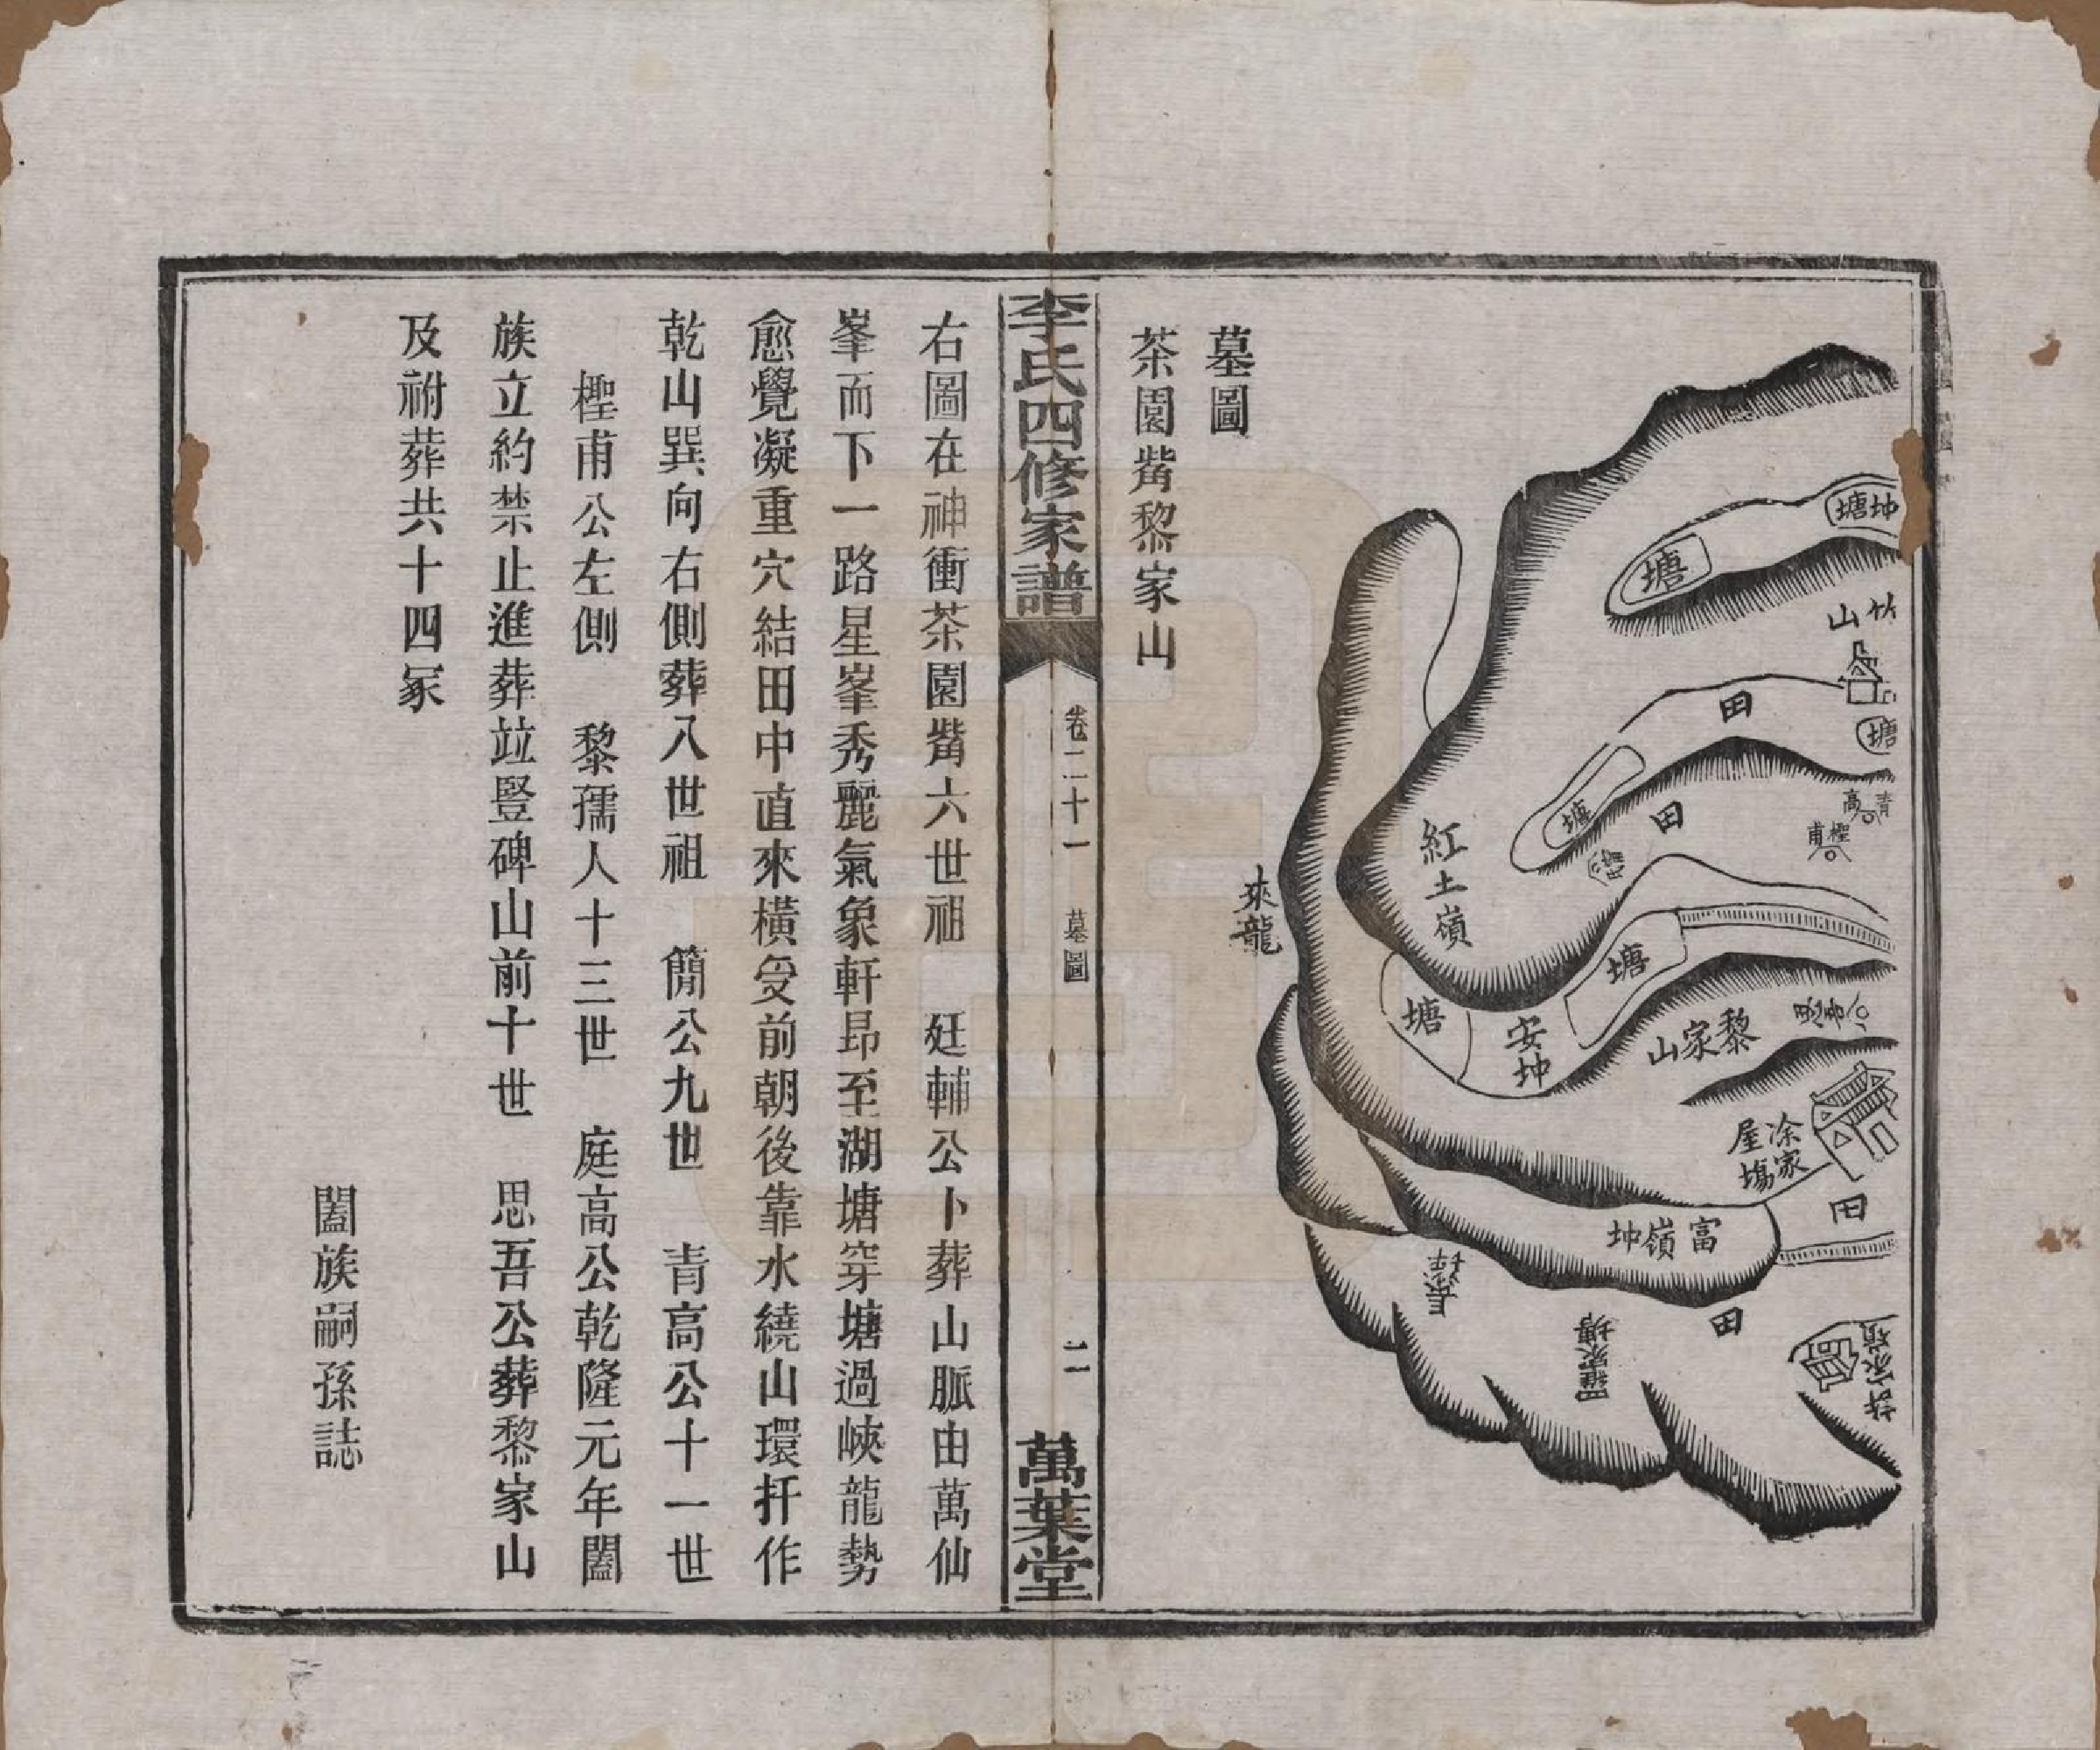 塘坤
塘
竹山
田
塘
塘
田
青高
檉甫
紅土嶺
來龍
塘
塘
安坤
黎家山
涂家屋塲
田
富嶺坤
田
羅家塘
許家嶺
墓圖
茶園觜黎家山
李氏四修家譜
卷二十一
墓圖
二
萬葉堂
右圖在神衝茶園觜六世祖 廷輔公卜葬山脈由萬仙
峯而下一路星峯秀麗氣象軒昻至湖塘穿塘過峽龍勢
愈覺凝重穴結田中直來橫受前朝後靠水繞山環扦作
乾山巽向右側葬八世祖 簡公九世 青高公十一世
檉甫公左側 黎孺人十三世 庭高公乾隆元年闔
族立約禁止進葬竝豎碑山前十世 思吾公葬黎家山
及祔葬共十四冢
闔族嗣孫誌